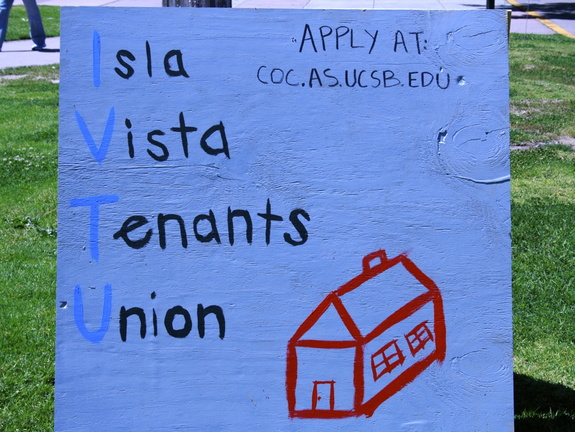 APPLY AT:
COC.AS.UCSB.EDU
Isla
Vista
Tenants
Union